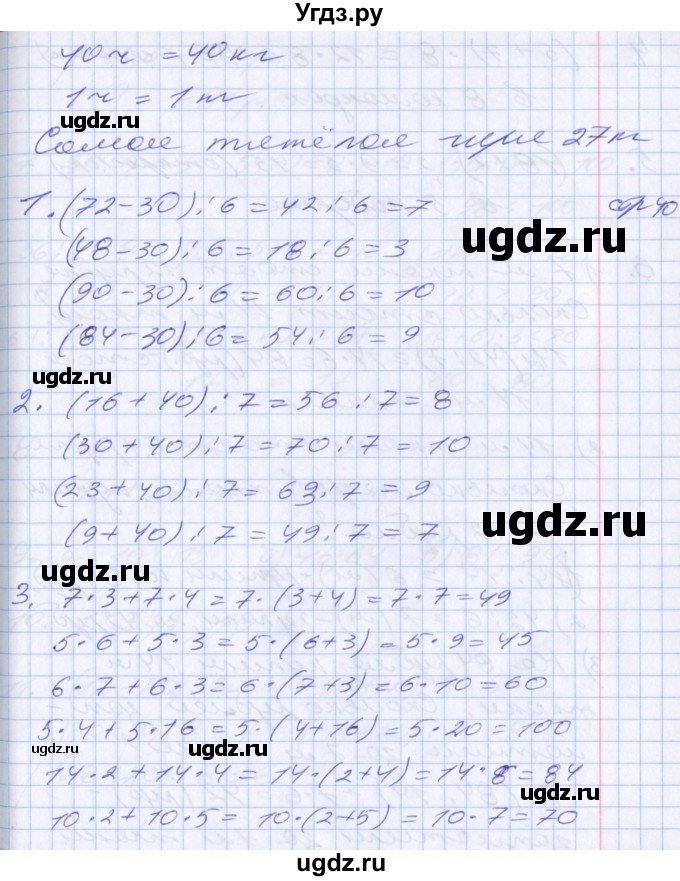 Угдз.ру
40ч = 40кг
1ч = 1кг
ugdz.ru
Самая тяжёлая гиря 27кг
1. (72-30):6=42:6=7
стр 40
(48-30):6=18:6=3
ugdz.ru
(90-30):6=60:6=10
(84-30):6=54:6=9
ugdz.ru
2. (16+40):7=56:7=8
(30+40):7=70:7=10
(23+40):7=63:7=9
ugdz.ru
(9+40):7=49:7=7
ugdz.ru
3. 7·3+7·4=7·(3+4)=7·7=49
5·6+5·3=5·(6+3)=5·9=45
6·7+6·3=6·(7+3)=6·10=60
5·4+5·16=5·(4+16)=5·20=100
ugdz.ru
ugdz.ru
14·2+14·4=14·(2+4)=14·6=84
ugdz.ru
10·2+10·5=10·(2+5)=10·7=70
ugdz.ru